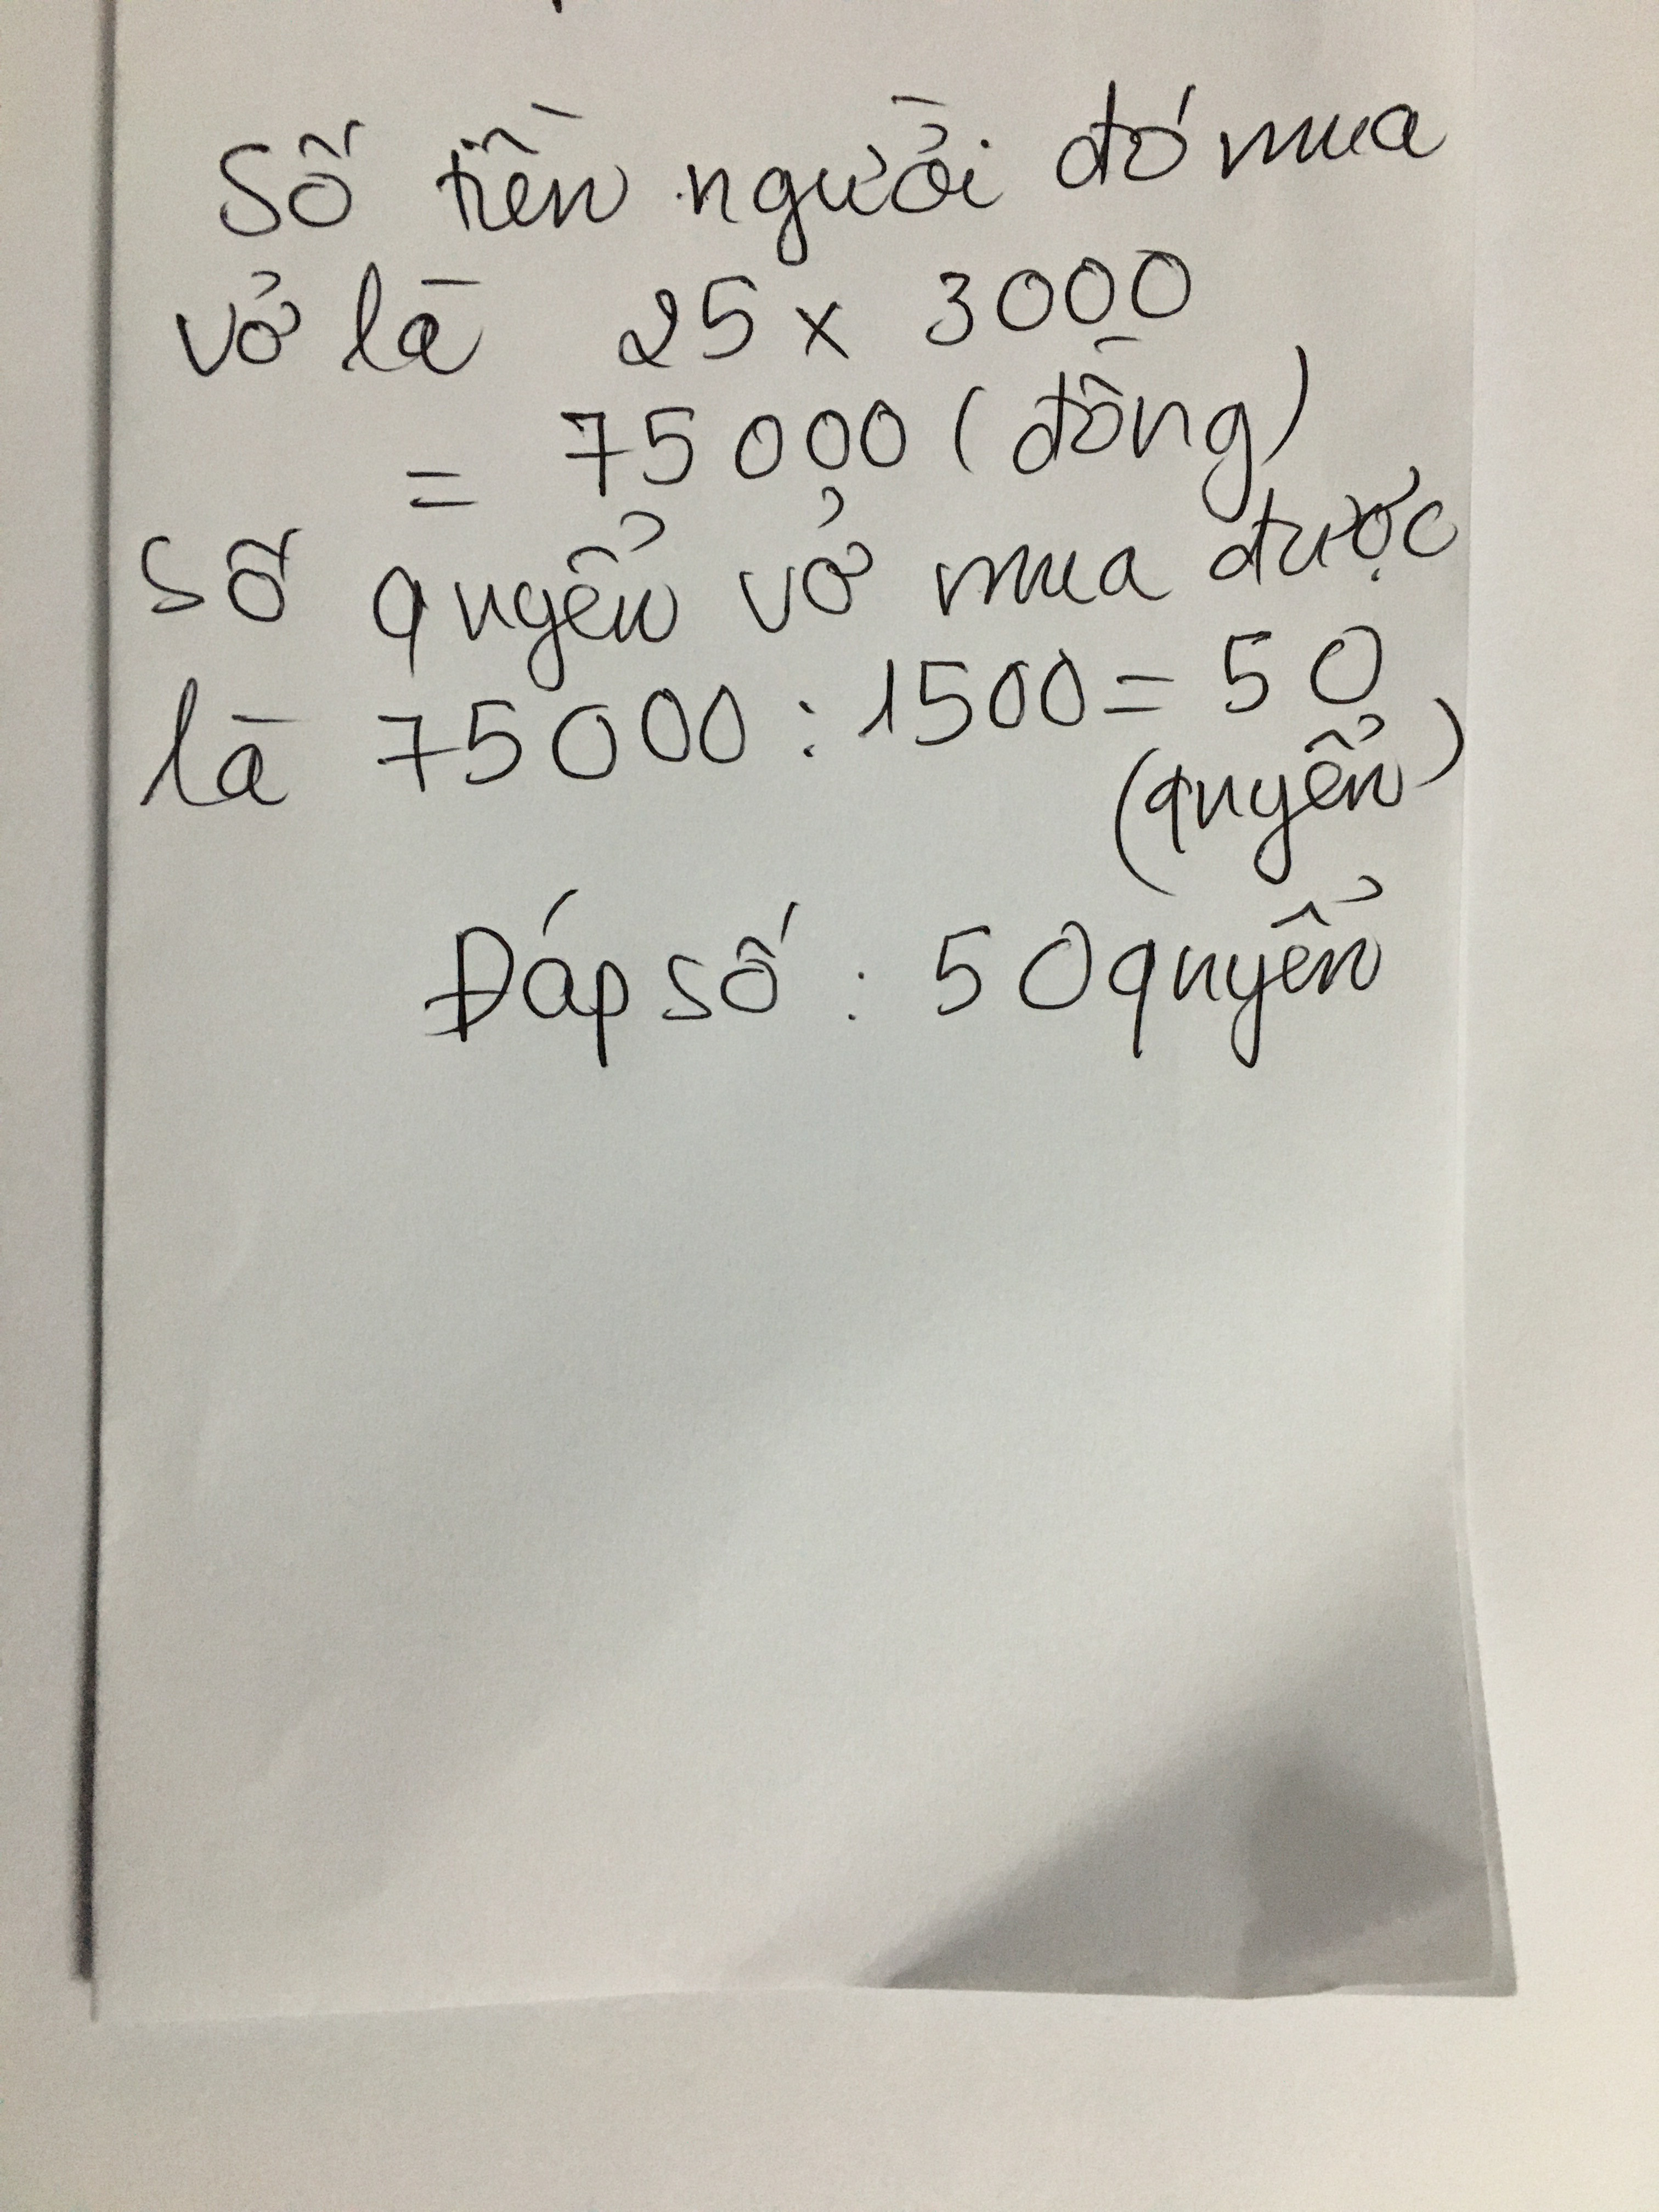 Số tiền người đó mua
vở là 25 x 3000
= 75000 (đồng)
Số quyển vở mua được
là 75000 : 1500 = 50
(quyển)
Đáp số : 50 quyển